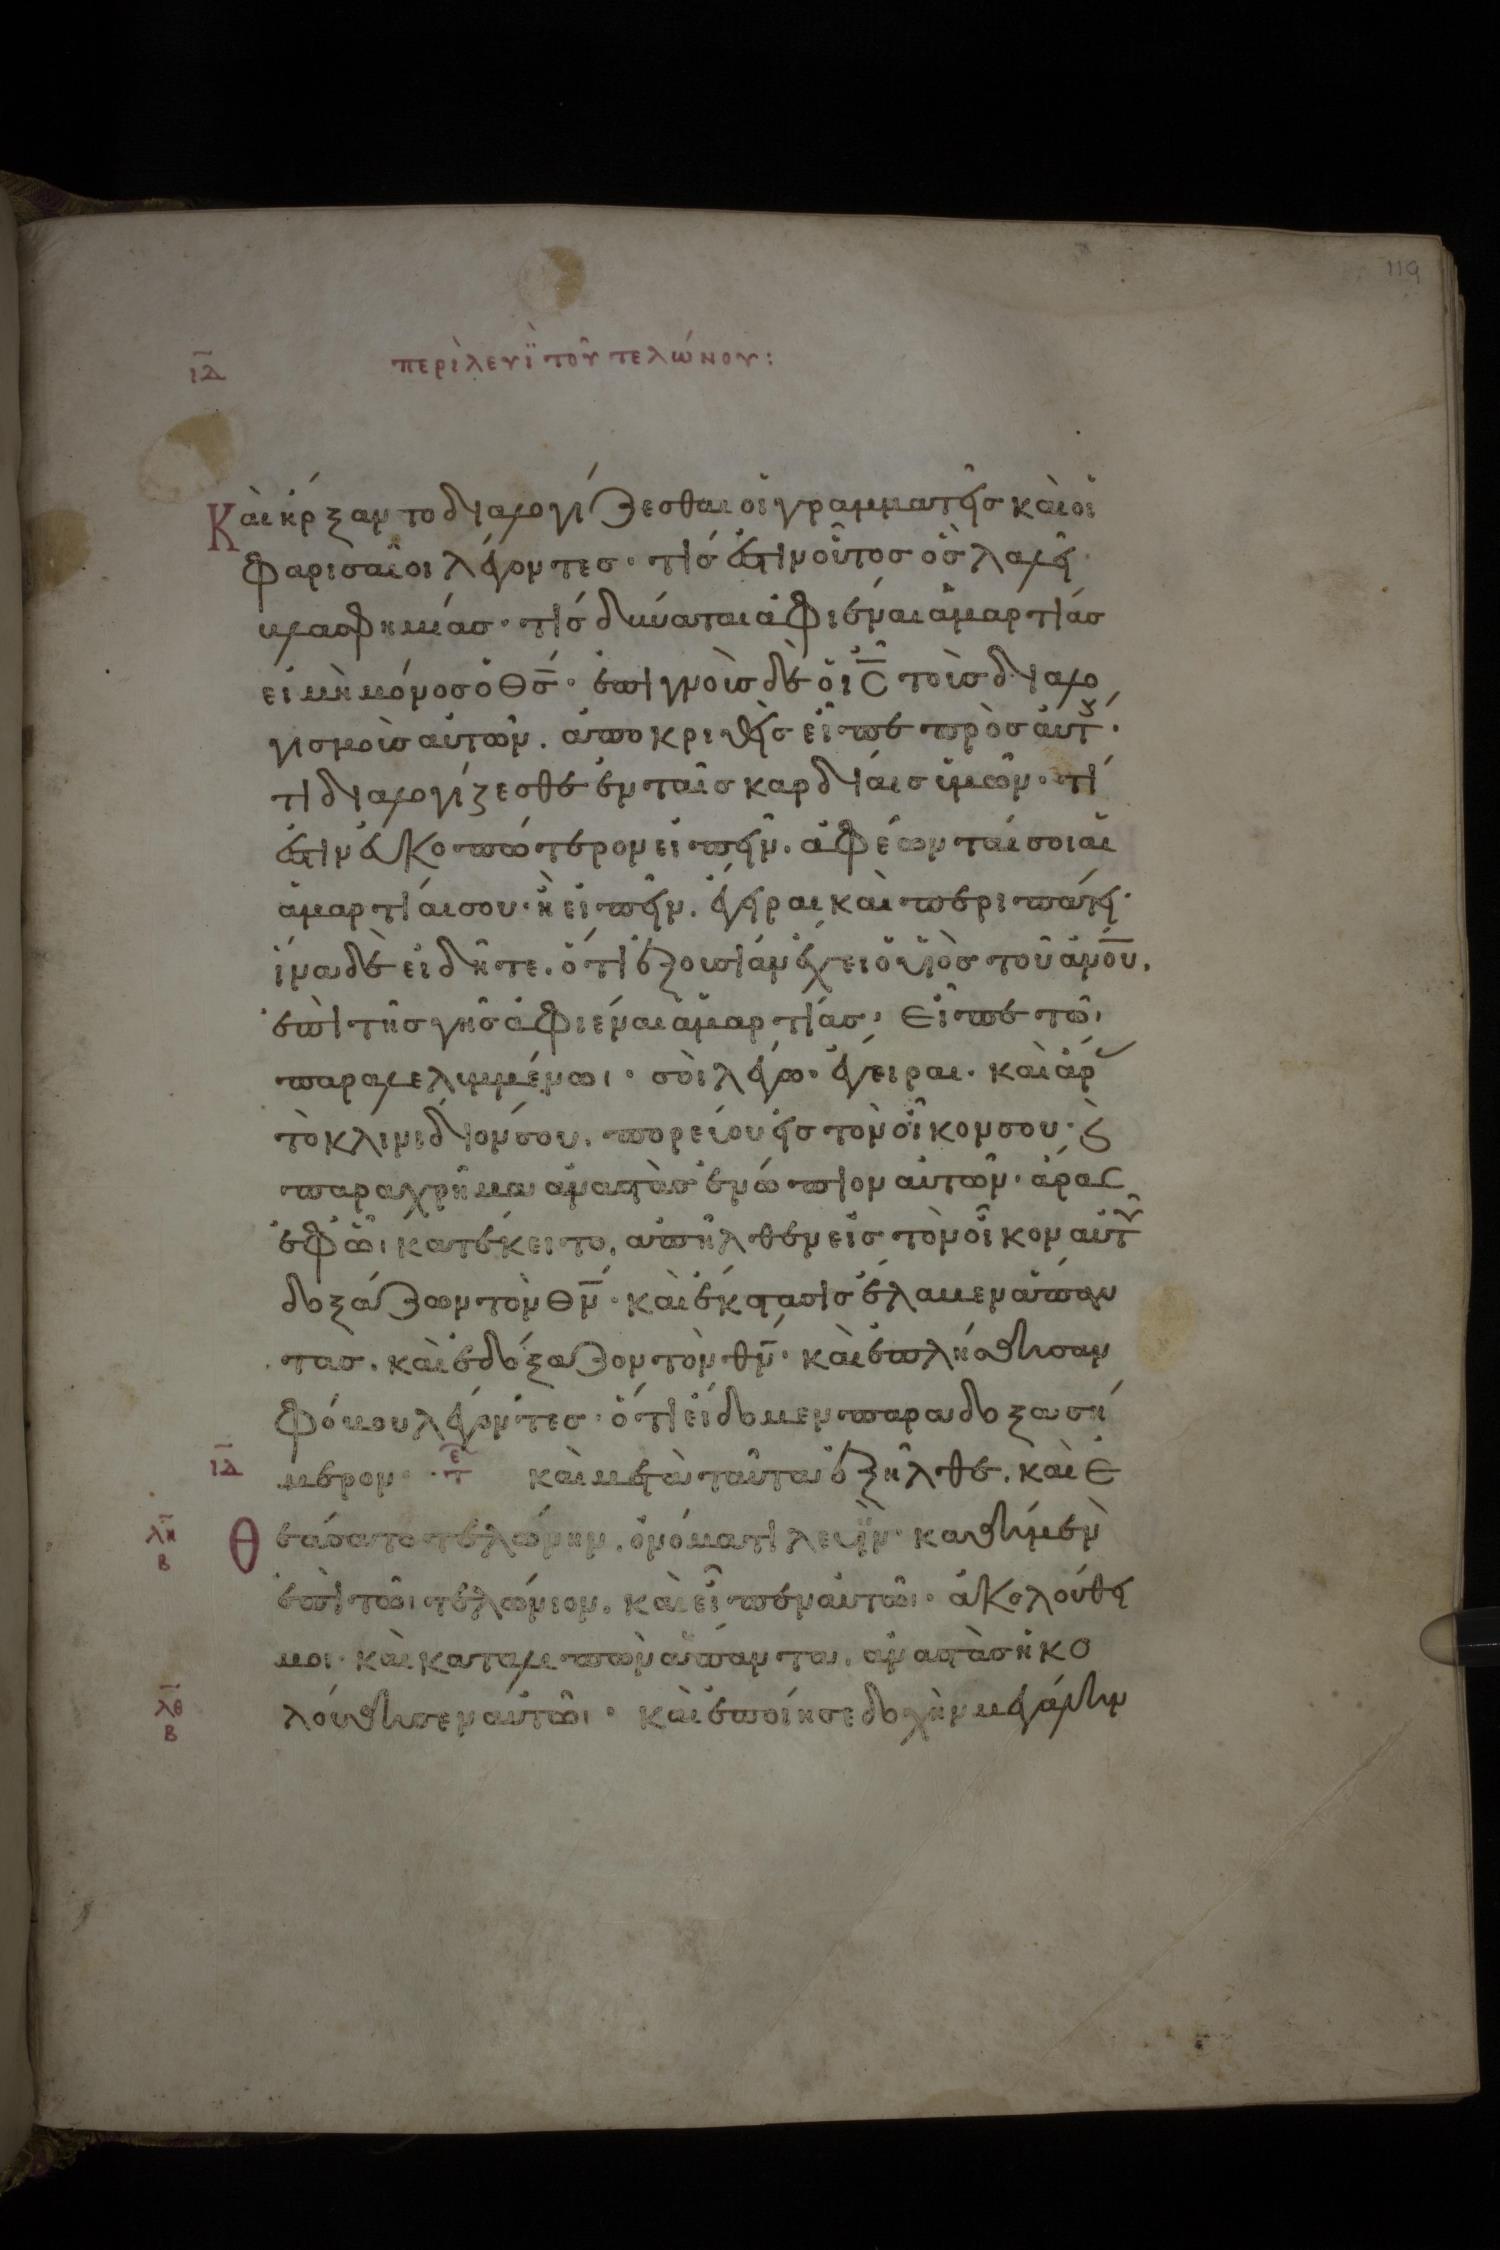 119
ιδ περὶ λευῒ τοῦ τελώνου:
Καὶ ἤρξαντο διαλογίζεσθαι οἱ γραμματεῖς καὶ οἱ
φαρισαῖοι λέγοντες· τίς ἐστιν οὗτος ὃς λαλεῖ
βλασφημίας· τίς δύναται ἀφιέναι ἁμαρτίας
εἰ μὴ μόνος ὁ θς· ἐπιγνοὺς δὲ ὁ ις τοὺς διαλο
γισμοὺς αὐτῶν. ἀποκριθεὶς εἶπε πρὸς αὐτ·
τί διαλογίζεσθε ἐν ταῖς καρδίαις ὑμῶν· τί
ἐστιν εὐκοπώτερον εἰπεῖν. ἀφέωνταί σοι αἱ
ἁμαρτίαι σου· ἢ εἰπεῖν. ἔγειραι καὶ περιπάτει·
ἵνα δὲ εἰδῆτε. ὅτι ἐξουσίαν ἔχει ὁ υἱὸς τοῦ ἀνου.
ἐπὶ τῆς γῆς ἀφιέναι ἁμαρτίας· εἶπε τῶ
παραλελυμμένωι· σοὶ λέγω· ἔγειραι· καὶ ἄρ
τὸ κλινίδιόν σου. πορεύου εἰς τὸν οἶκον σου· ϗ
παραχρῆμα ἀναστὰς ἐνώπιον αὐτῶν· ἄρας
ἐφ ὧι κατέκειτο, ἀπῆλθεν εἰς τὸν οἶκον αὐτ
δοξάζων τὸν θν· καὶ ἔκστασις ἔλαβεν ἅπαν
τας. καὶ ἐδόξαζον τὸν θν· καὶ ἐπλήσθησαν
φόβου λέγοντες· ὅτι εἴδομεν παράδοξα σή
ιδ μερον· τε καὶ μετὰ ταῦτα ἐξῆλθε. καὶ ἐ
λη β Θεάσατο τελώνην. ὀνόματι λευῒν· καθήμεν
ἐπὶ τῶι τελώνιον. καὶ εἶπεν αὐτῶι· ἀκολούθει
μοι· καὶ καταλιπὼν ἅπαντα. ἀναστὰς ἠκο
λθ β λούθησεν αὐτῶι· καὶ ἐποίησε δοχὴν μεγάλην